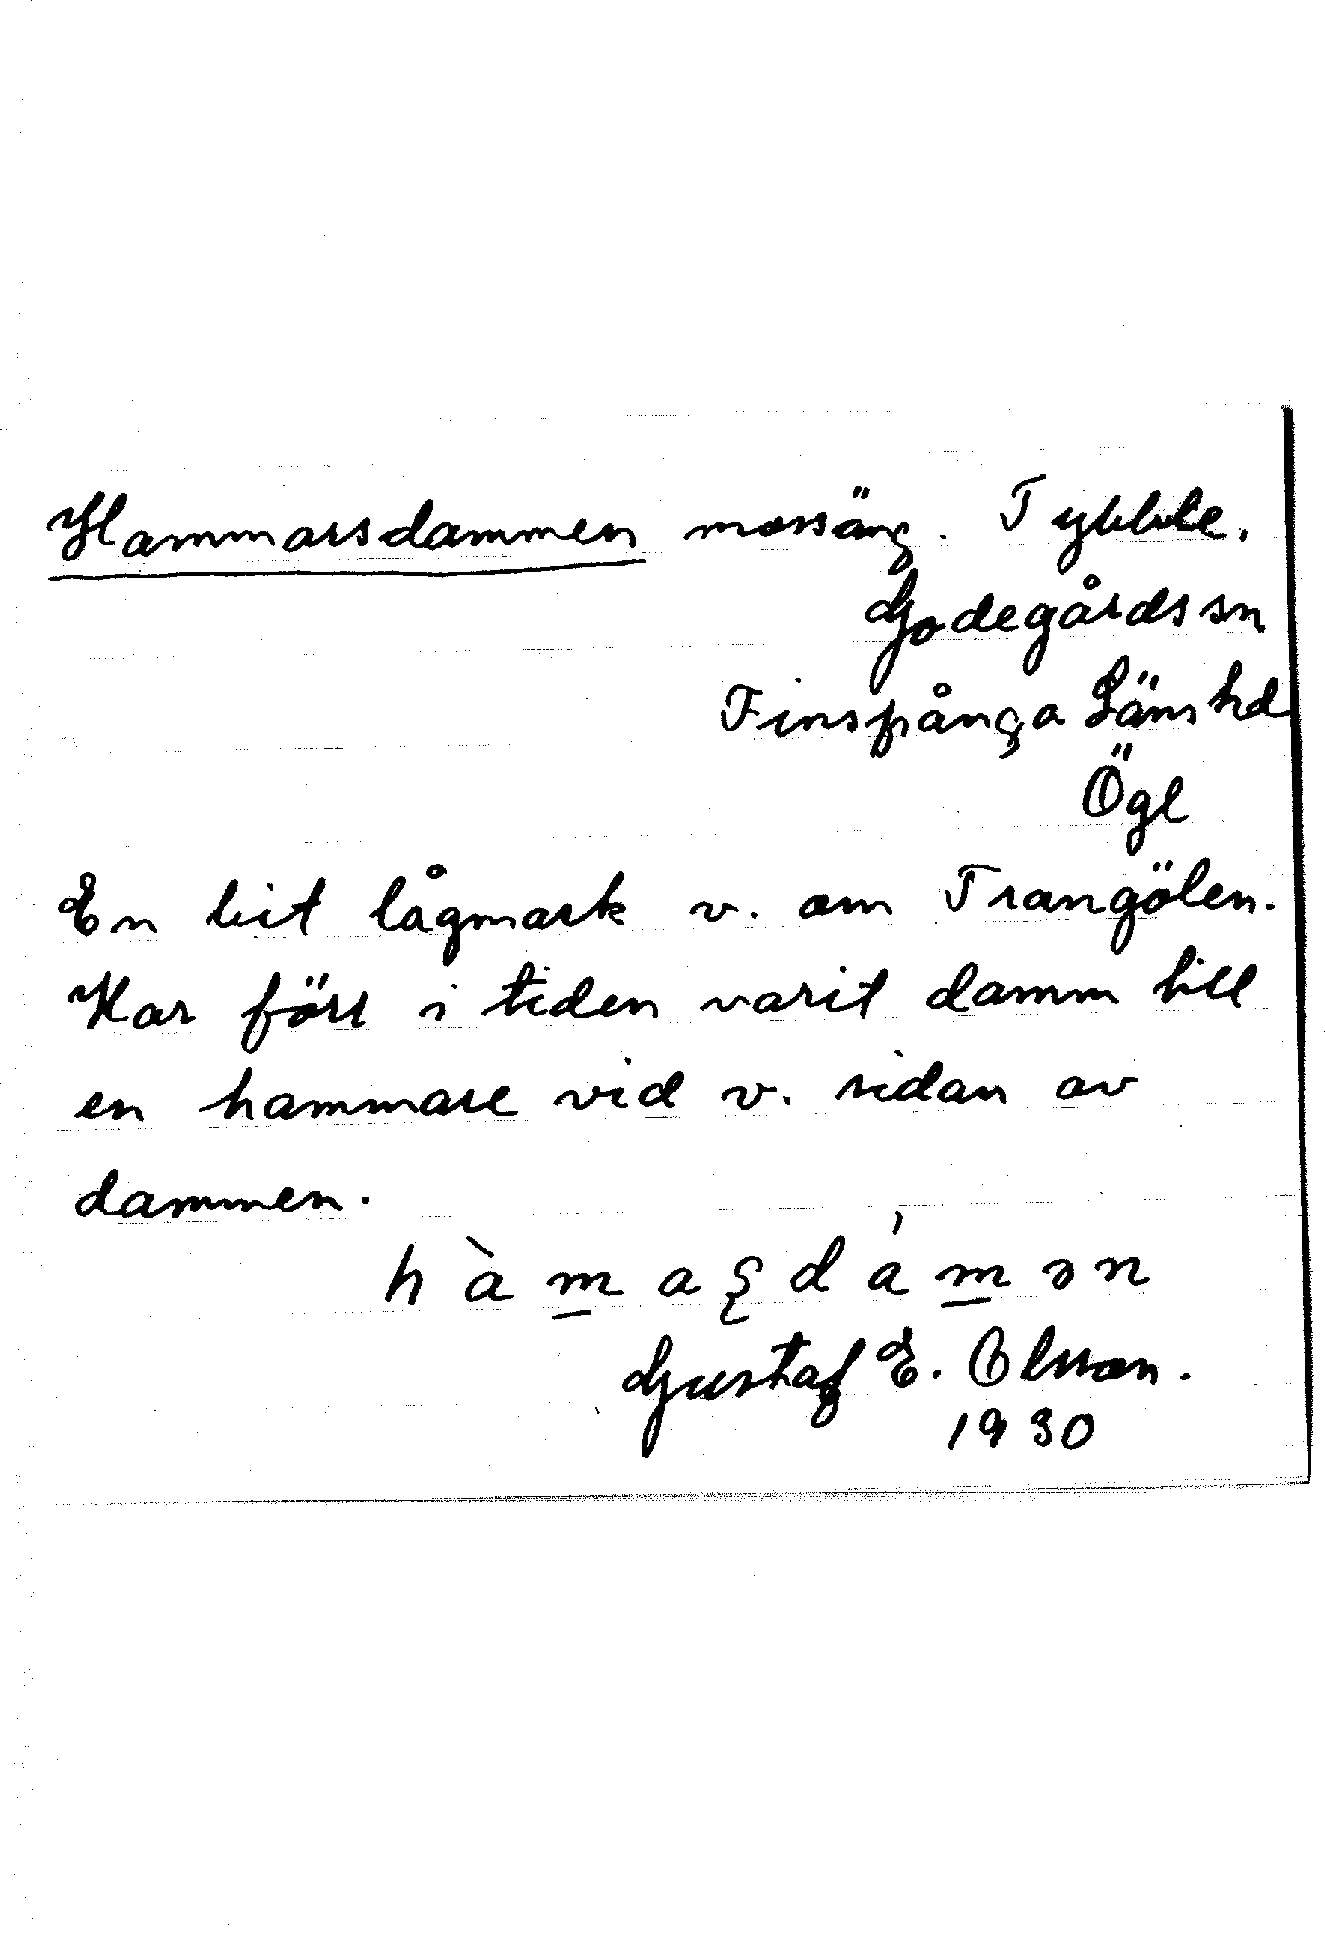 Hammarsdammen mossäng. Tybble.
Godegårds sn
Finspånga Läns hd
Ögl
En bit lågmark v. om Trangölen.
Har förr i tiden varit damm till
en hammare vid v. sidan av
dammen.
Gustaf E. Olsson.
1930